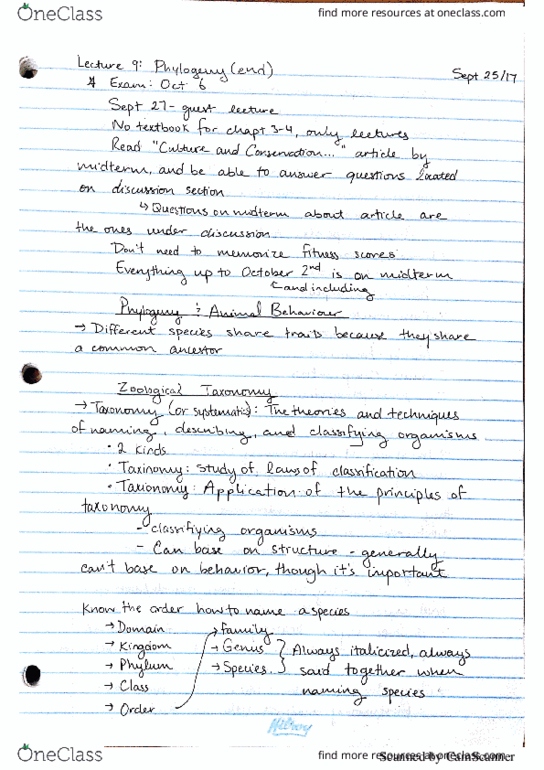 OneClass
find more resources at oneclass.com
Lecture 9: Phylogeny (end)
Sept 25/17
* Exam: Oct 6
Sept 27 - guest lecture
No textbook for chapt 3-4, only lectures
Read "Culture and Conservation..." article by
midterm, and be able to answer questions located
on discussion section
↳ Questions on midterm about article are
the ones under discussion
Don't need to memorize fitness scores
Everything up to October 2nd is on midterm
and including
Phylogeny & Animal Behaviour
→ Different species share traits because they share
a common ancestor
Zoological Taxonomy
→ Taxonomy (or systematic): The theories and techniques
of naming, describing, and classifying organisms
• 2 kinds
• Taxinomy: study of laws of classification
• Taxionomy: Application of the principles of
taxonomy
- classifiying organisms
- Can base on structure - generally
can't base on behavior, though it's important
Know the order how to name a species
→ Domain
→ Kingdom
→ Phylum
→ Class
→ Order
→ family
→ Genius
→ Species
Always italicized, always
said together when
naming species
Hilroy
OneClass
find more resources at oneclass.com
Scanned by CamScanner